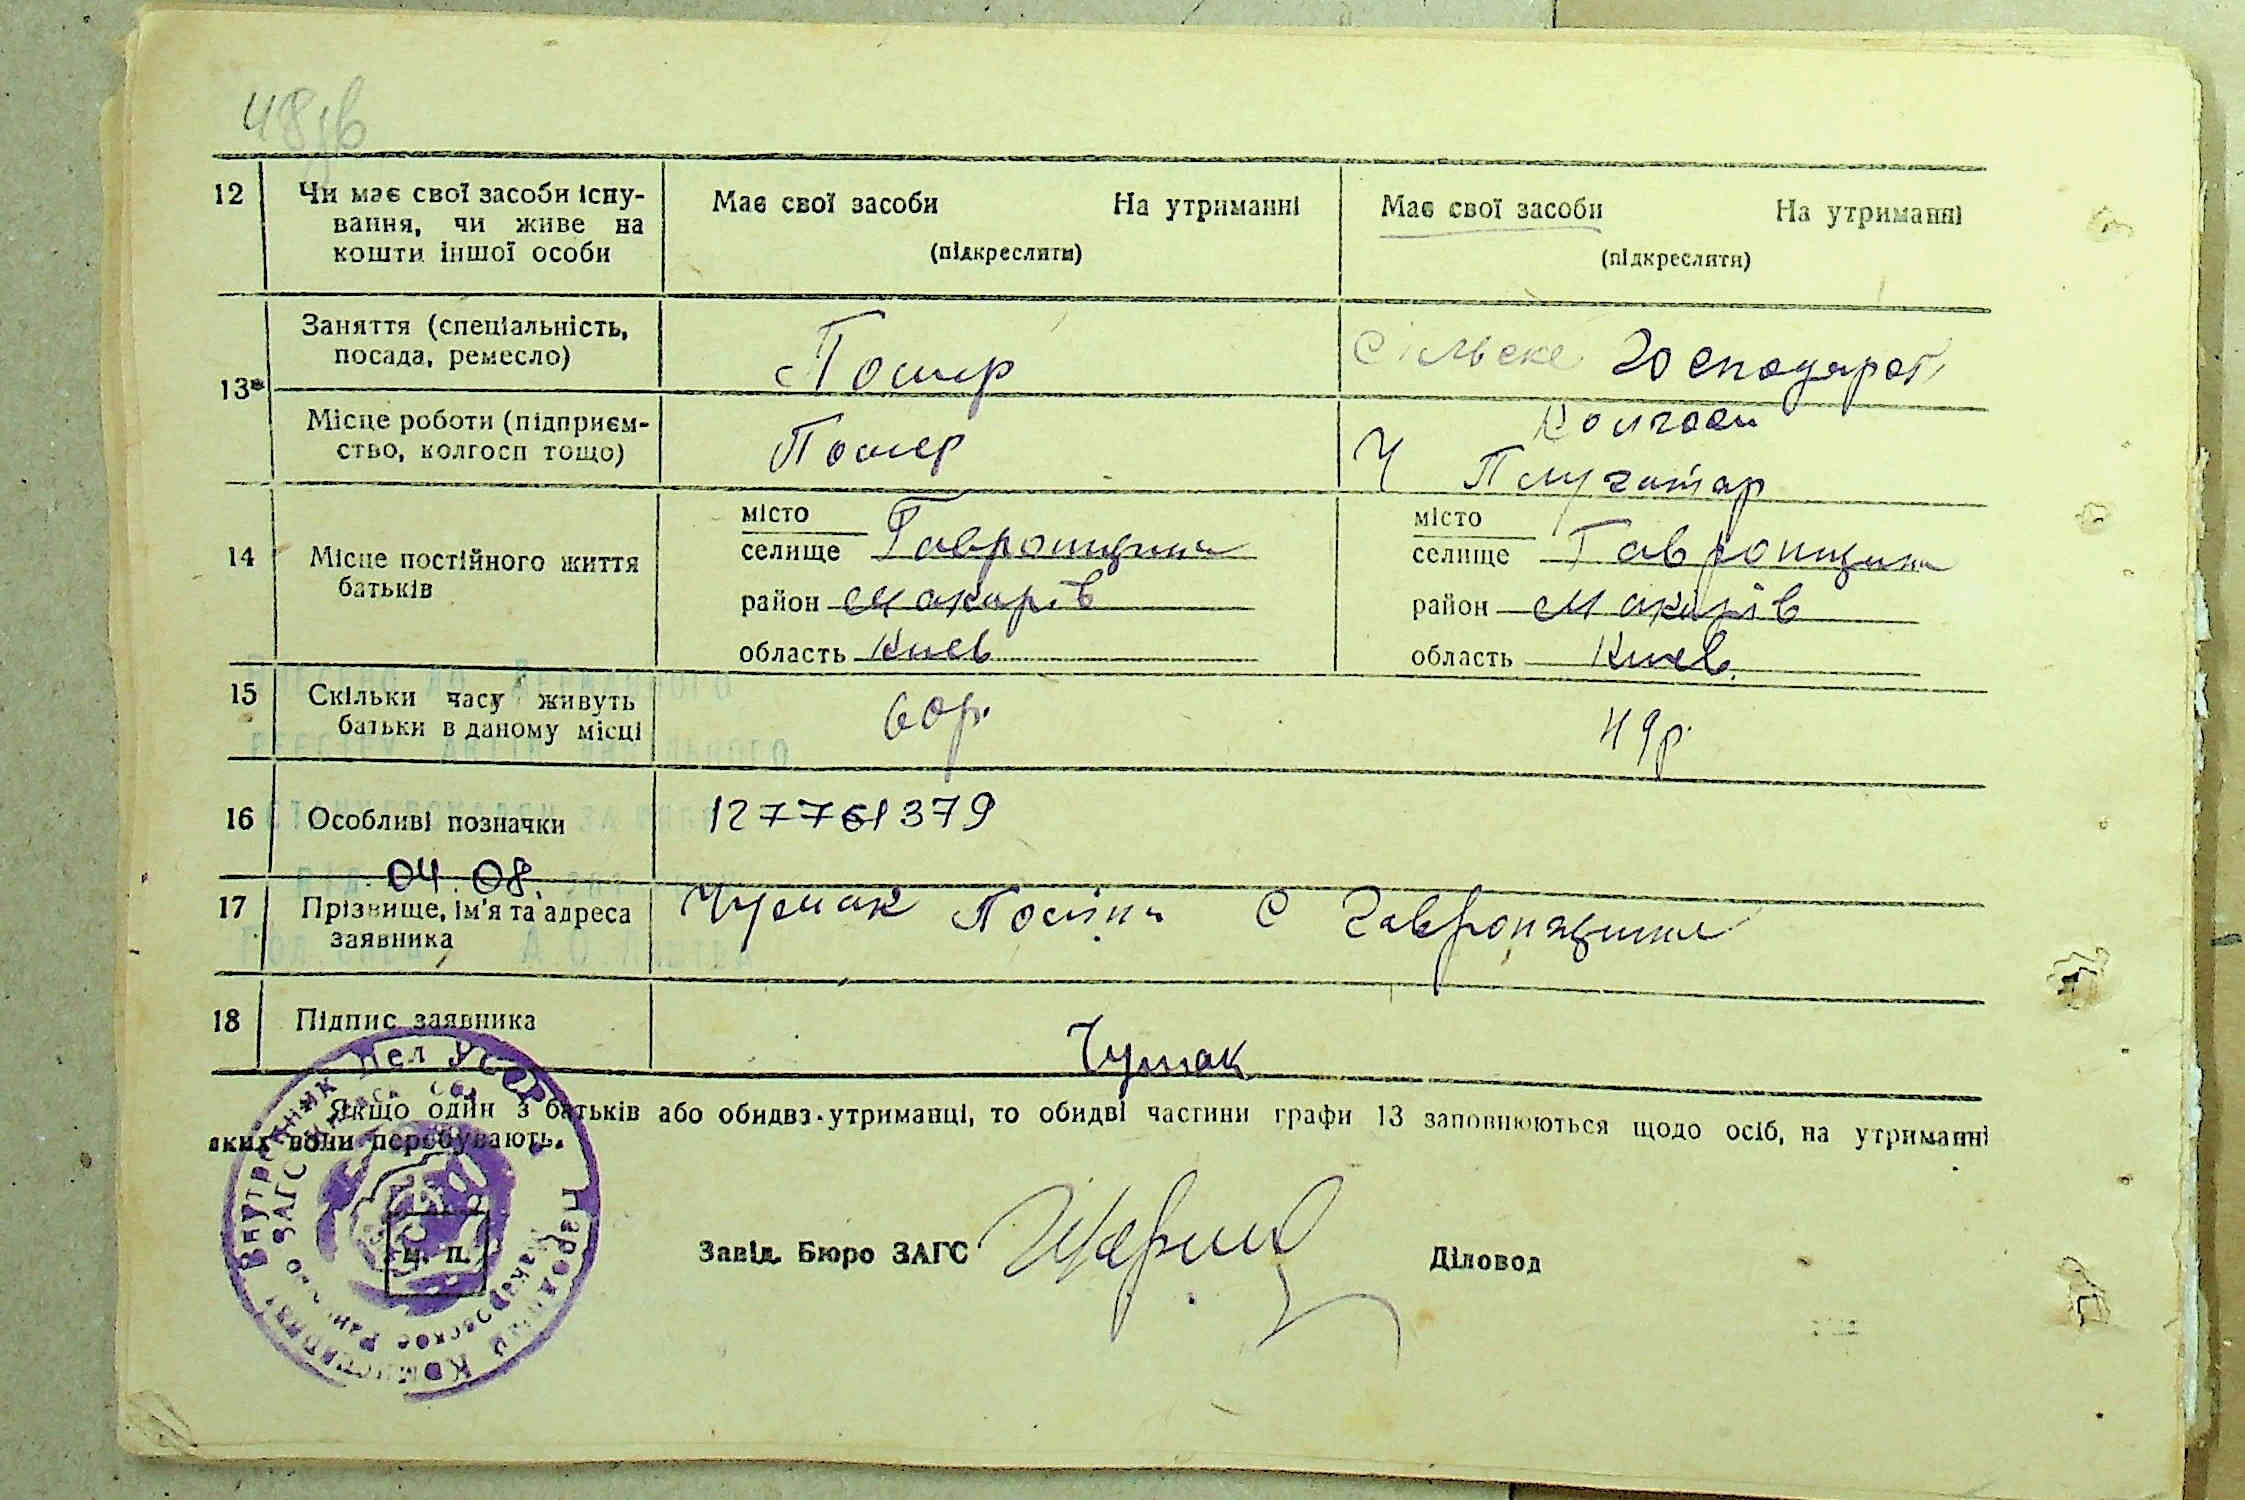 48зв
12 Чи має свої засоби існу-
вання, чи живе на
кошти іншої особи
Має свої засоби На утриманні
(підкреслити)
Має свої засоби На утриманні
(підкреслити)
13*
Заняття (спеціальність,
посада, ремесло)
Помер
Сільське Господарст
Місце роботи (підприєм-
ство, колгосп тощо)
Помер
Колгосп
У Плугатар
14 Місце постійного життя
батьків
місто
селище Гавронщина
район Макарів
область Киев
місто
селище Гавронщина
район Макарів
область Киев
15 Скільки часу живуть
батьки в даному місці
60р.
49р.
16 Особливі позначки
127761379
04.08.
17 Прізвище, ім'я та адреса
заявника
Чумак Поліна С Гавронщина
18 Підпис заявника
Чумак
Якщо один з батьків або обидва утриманці, то обидві частини графи 13 заповнюються щодо осіб, на утриманні
яких вони перебувають.
Ч. П.
Завід. Бюро ЗАГС
Діловод
Народный Комиссариат Внутренних Дел УССР